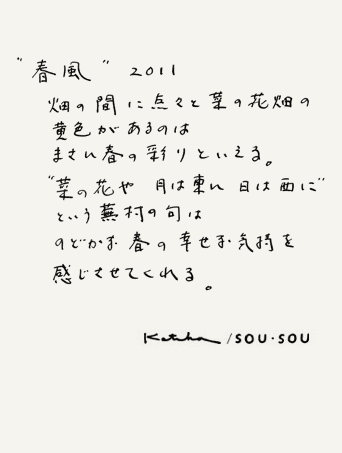 "春風" 2011
畑の間に点々と菜の花畑の
黄色があるのは
まさに春の彩りといえる。
"菜の花や 月は東に 日は西に"
という蕪村の句は
のどかな春の幸せな気持を
感じさせてくれる。
Katsuha /SOU·SOU